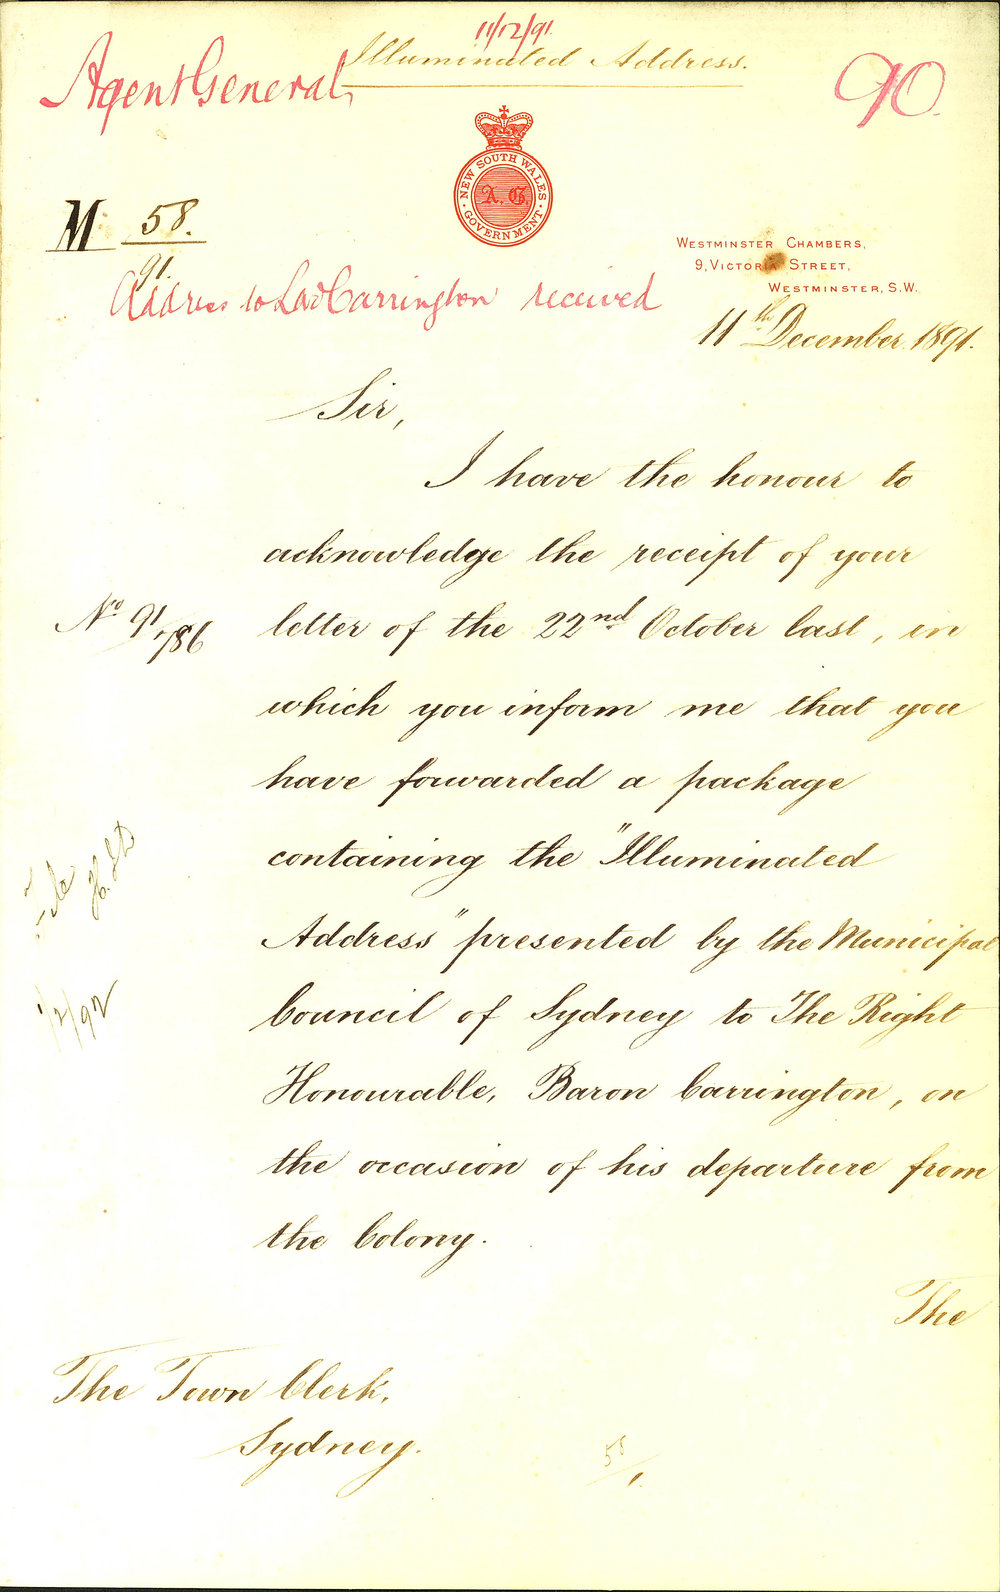 11/12/91
Illuminated Address.
Agent General,
90.
NEW SOUTH WALES
A. G.
GOVERNMENT
M 58.
91.
WESTMINSTER CHAMBERS,
9, VICTORIA STREET,
WESTMINSTER, S.W.
Address to Lord Carrington received
11th December 1891.
Sir,
I have the honour to
acknowledge the receipt of your
No 91/786
letter of the 22nd October last, in
which you inform me that you
have forwarded a package
containing the "Illuminated
Address" presented by the Municipal
Council of Sydney to The Right
Honourable, Baron Carrington, on
the occasion of his departure from
the Colony.
The
The Town Clerk,
Sydney.